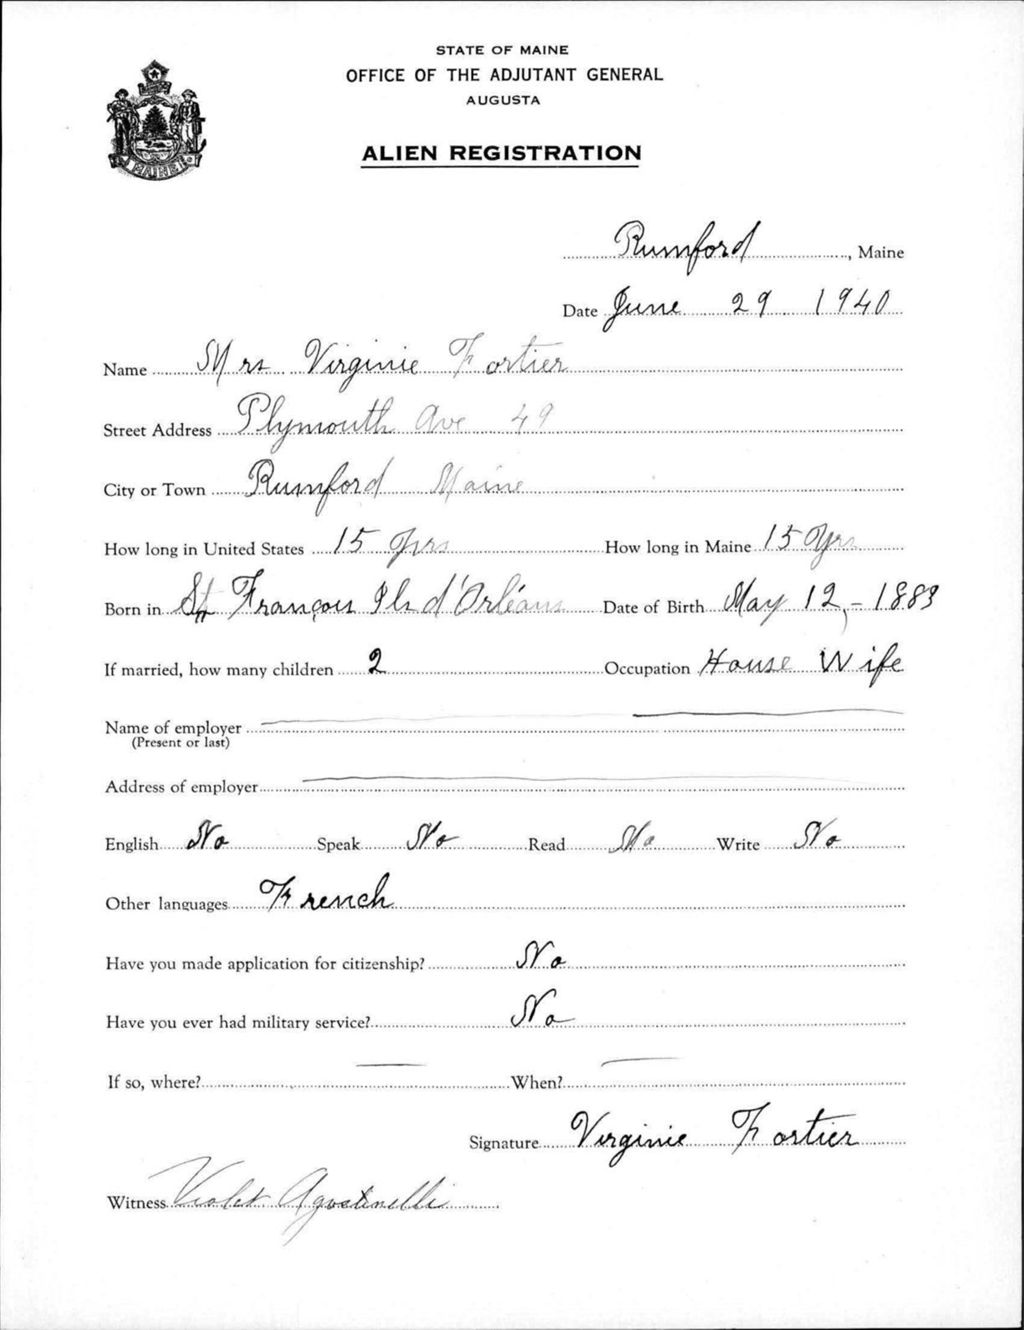 STATE OF MAINE
OFFICE OF THE ADJUTANT GENERAL
AUGUSTA
ALIEN REGISTRATION
MAINE
Rumford, Maine
Date June 29 1940
Name Mrs Virginie Fortier
Street Address Plymouth Ave 49
City or Town Rumford Maine
How long in United States 15 Yrs How long in Maine 15 Yrs
Born in St François Ile d'Orléans Date of Birth May 12, - 1883
If married, how many children 2 Occupation House Wife
Name of employer
(Present or last)
Address of employer
English No Speak No Read No Write No
Other languages French
Have you made application for citizenship? No
Have you ever had military service? No
If so, where? When?
Signature Virginie Fortier
Witness Violet Agostinelli